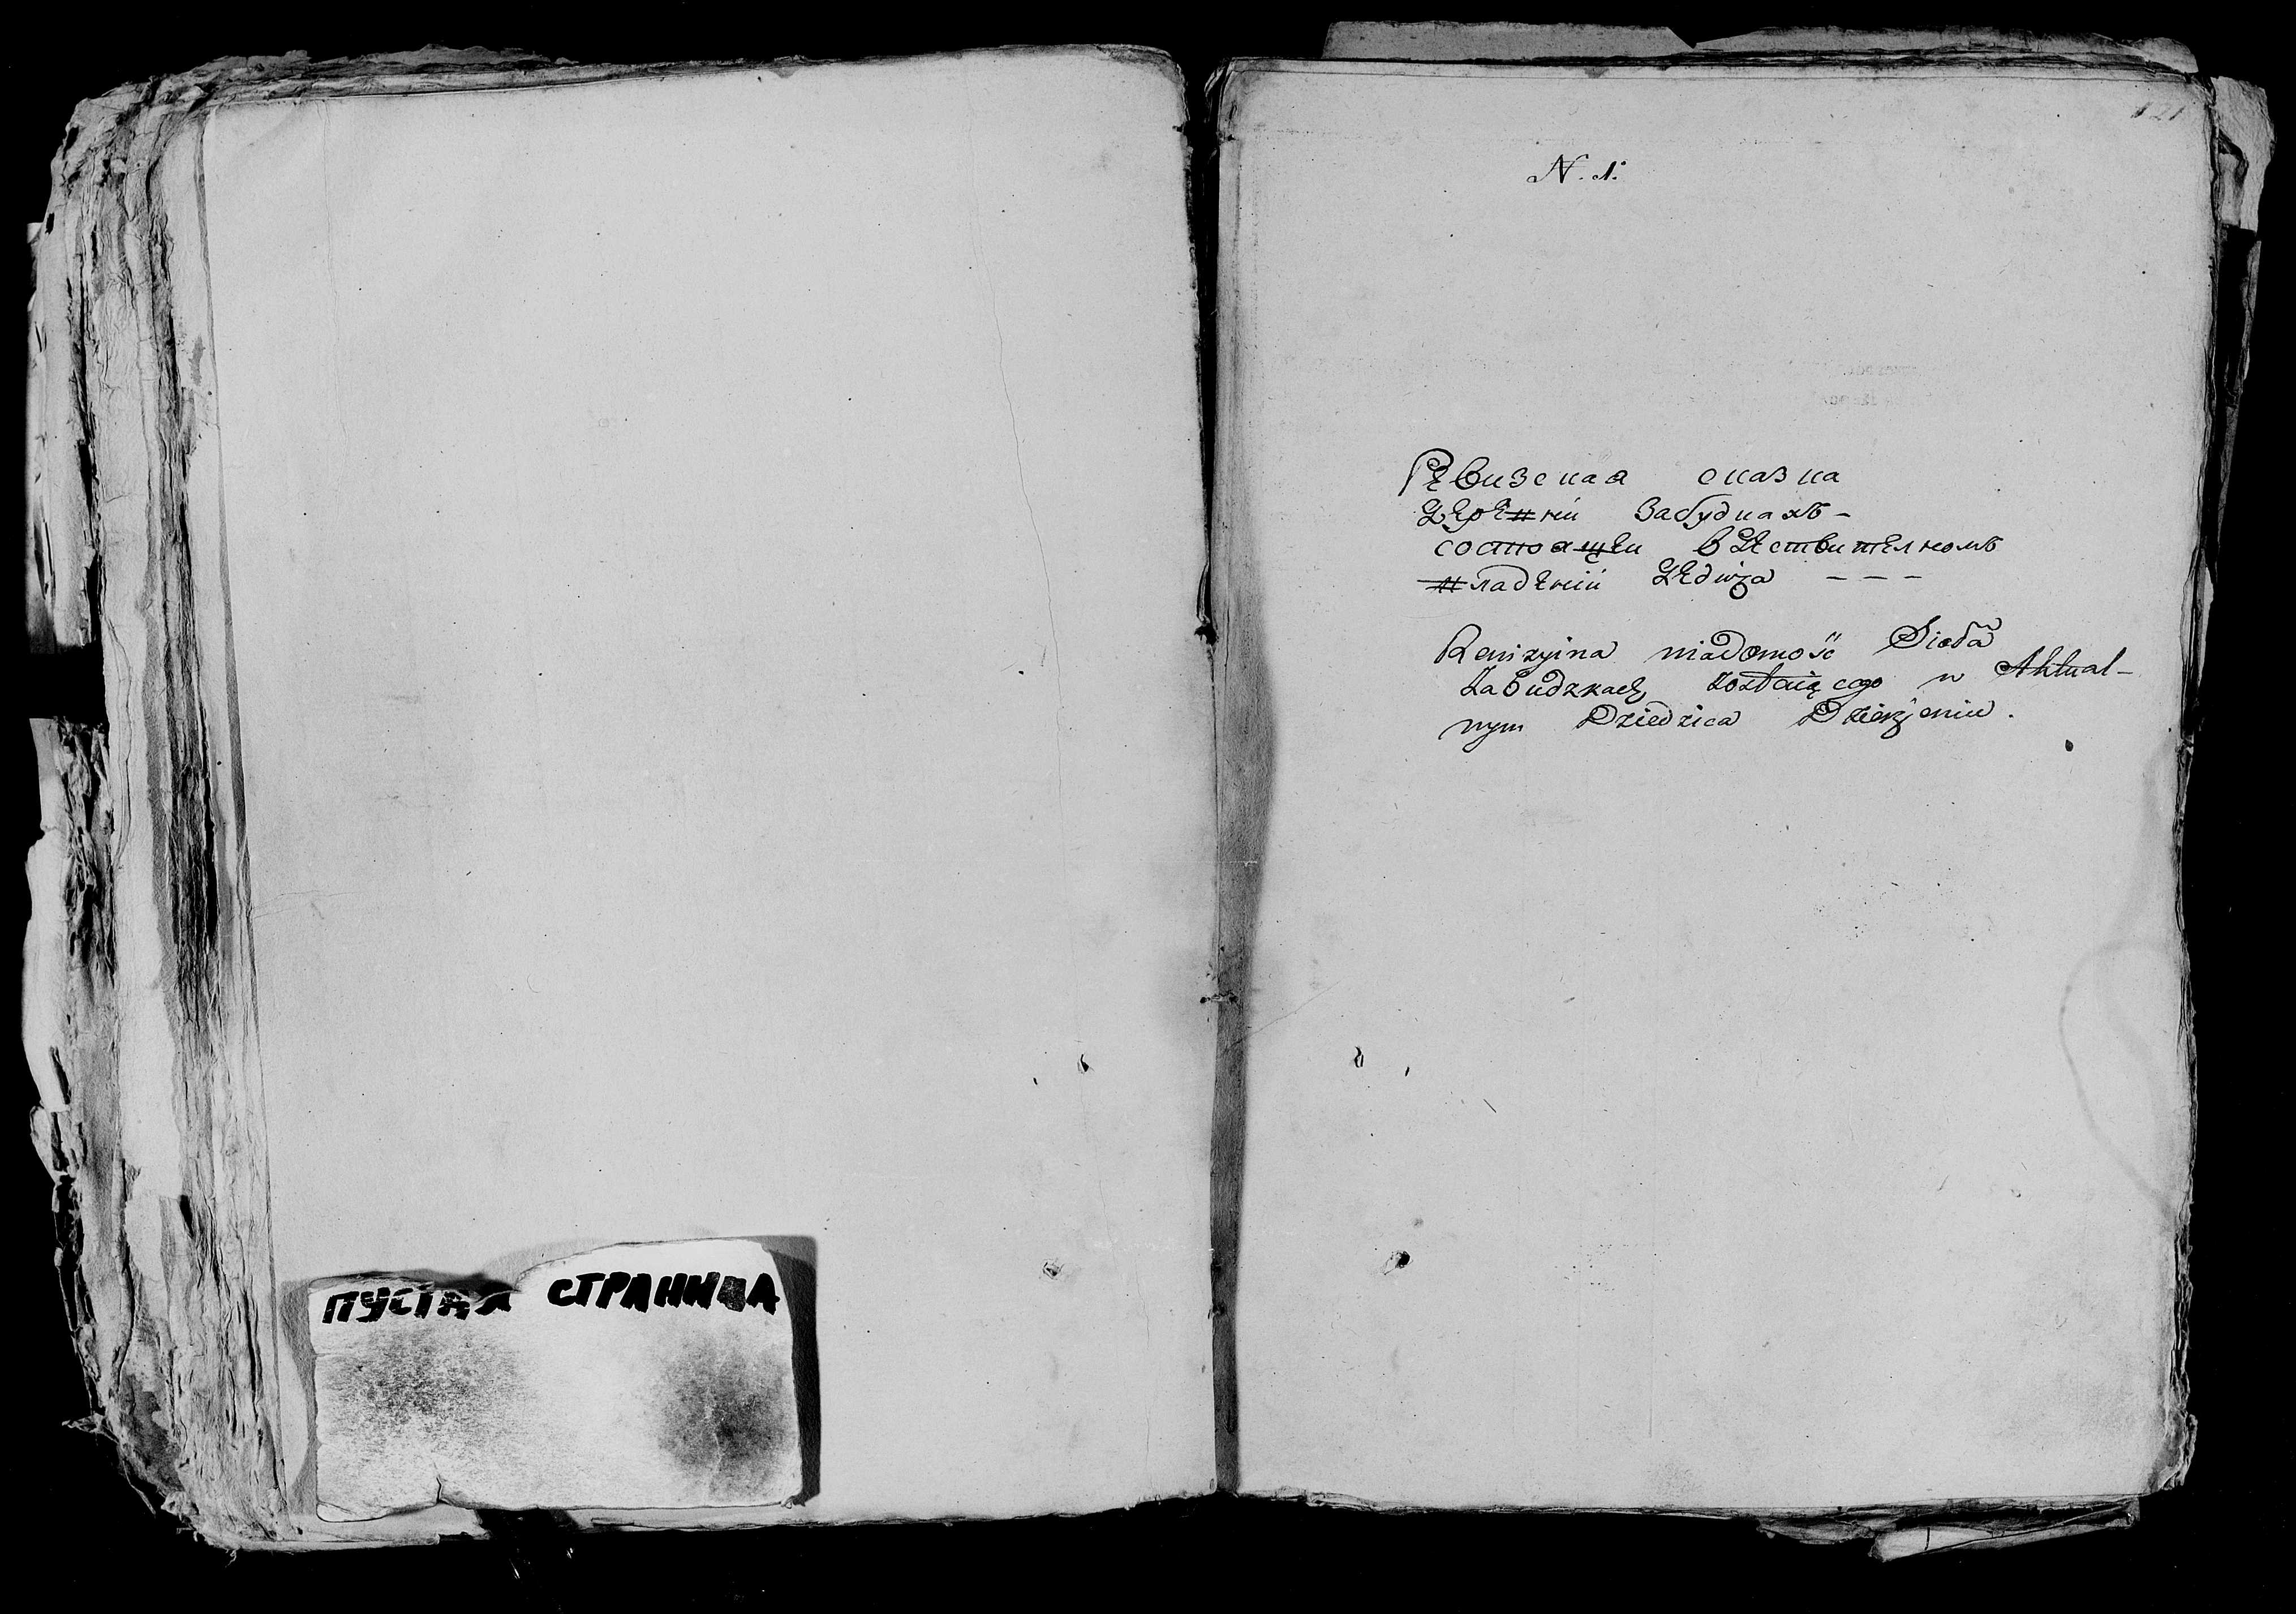 ПУСТАЯ СТРАНИЦА
121
N. 1:
Ревизская сказка
деревни Забудкахъ -
состоящеи в Дествителномъ
владении Дедича - - -
Rewizyina wiadomość Sioła
Zabudzkach zostaiącego w Aktual-
nym Dziedzica Dzierżeniu.